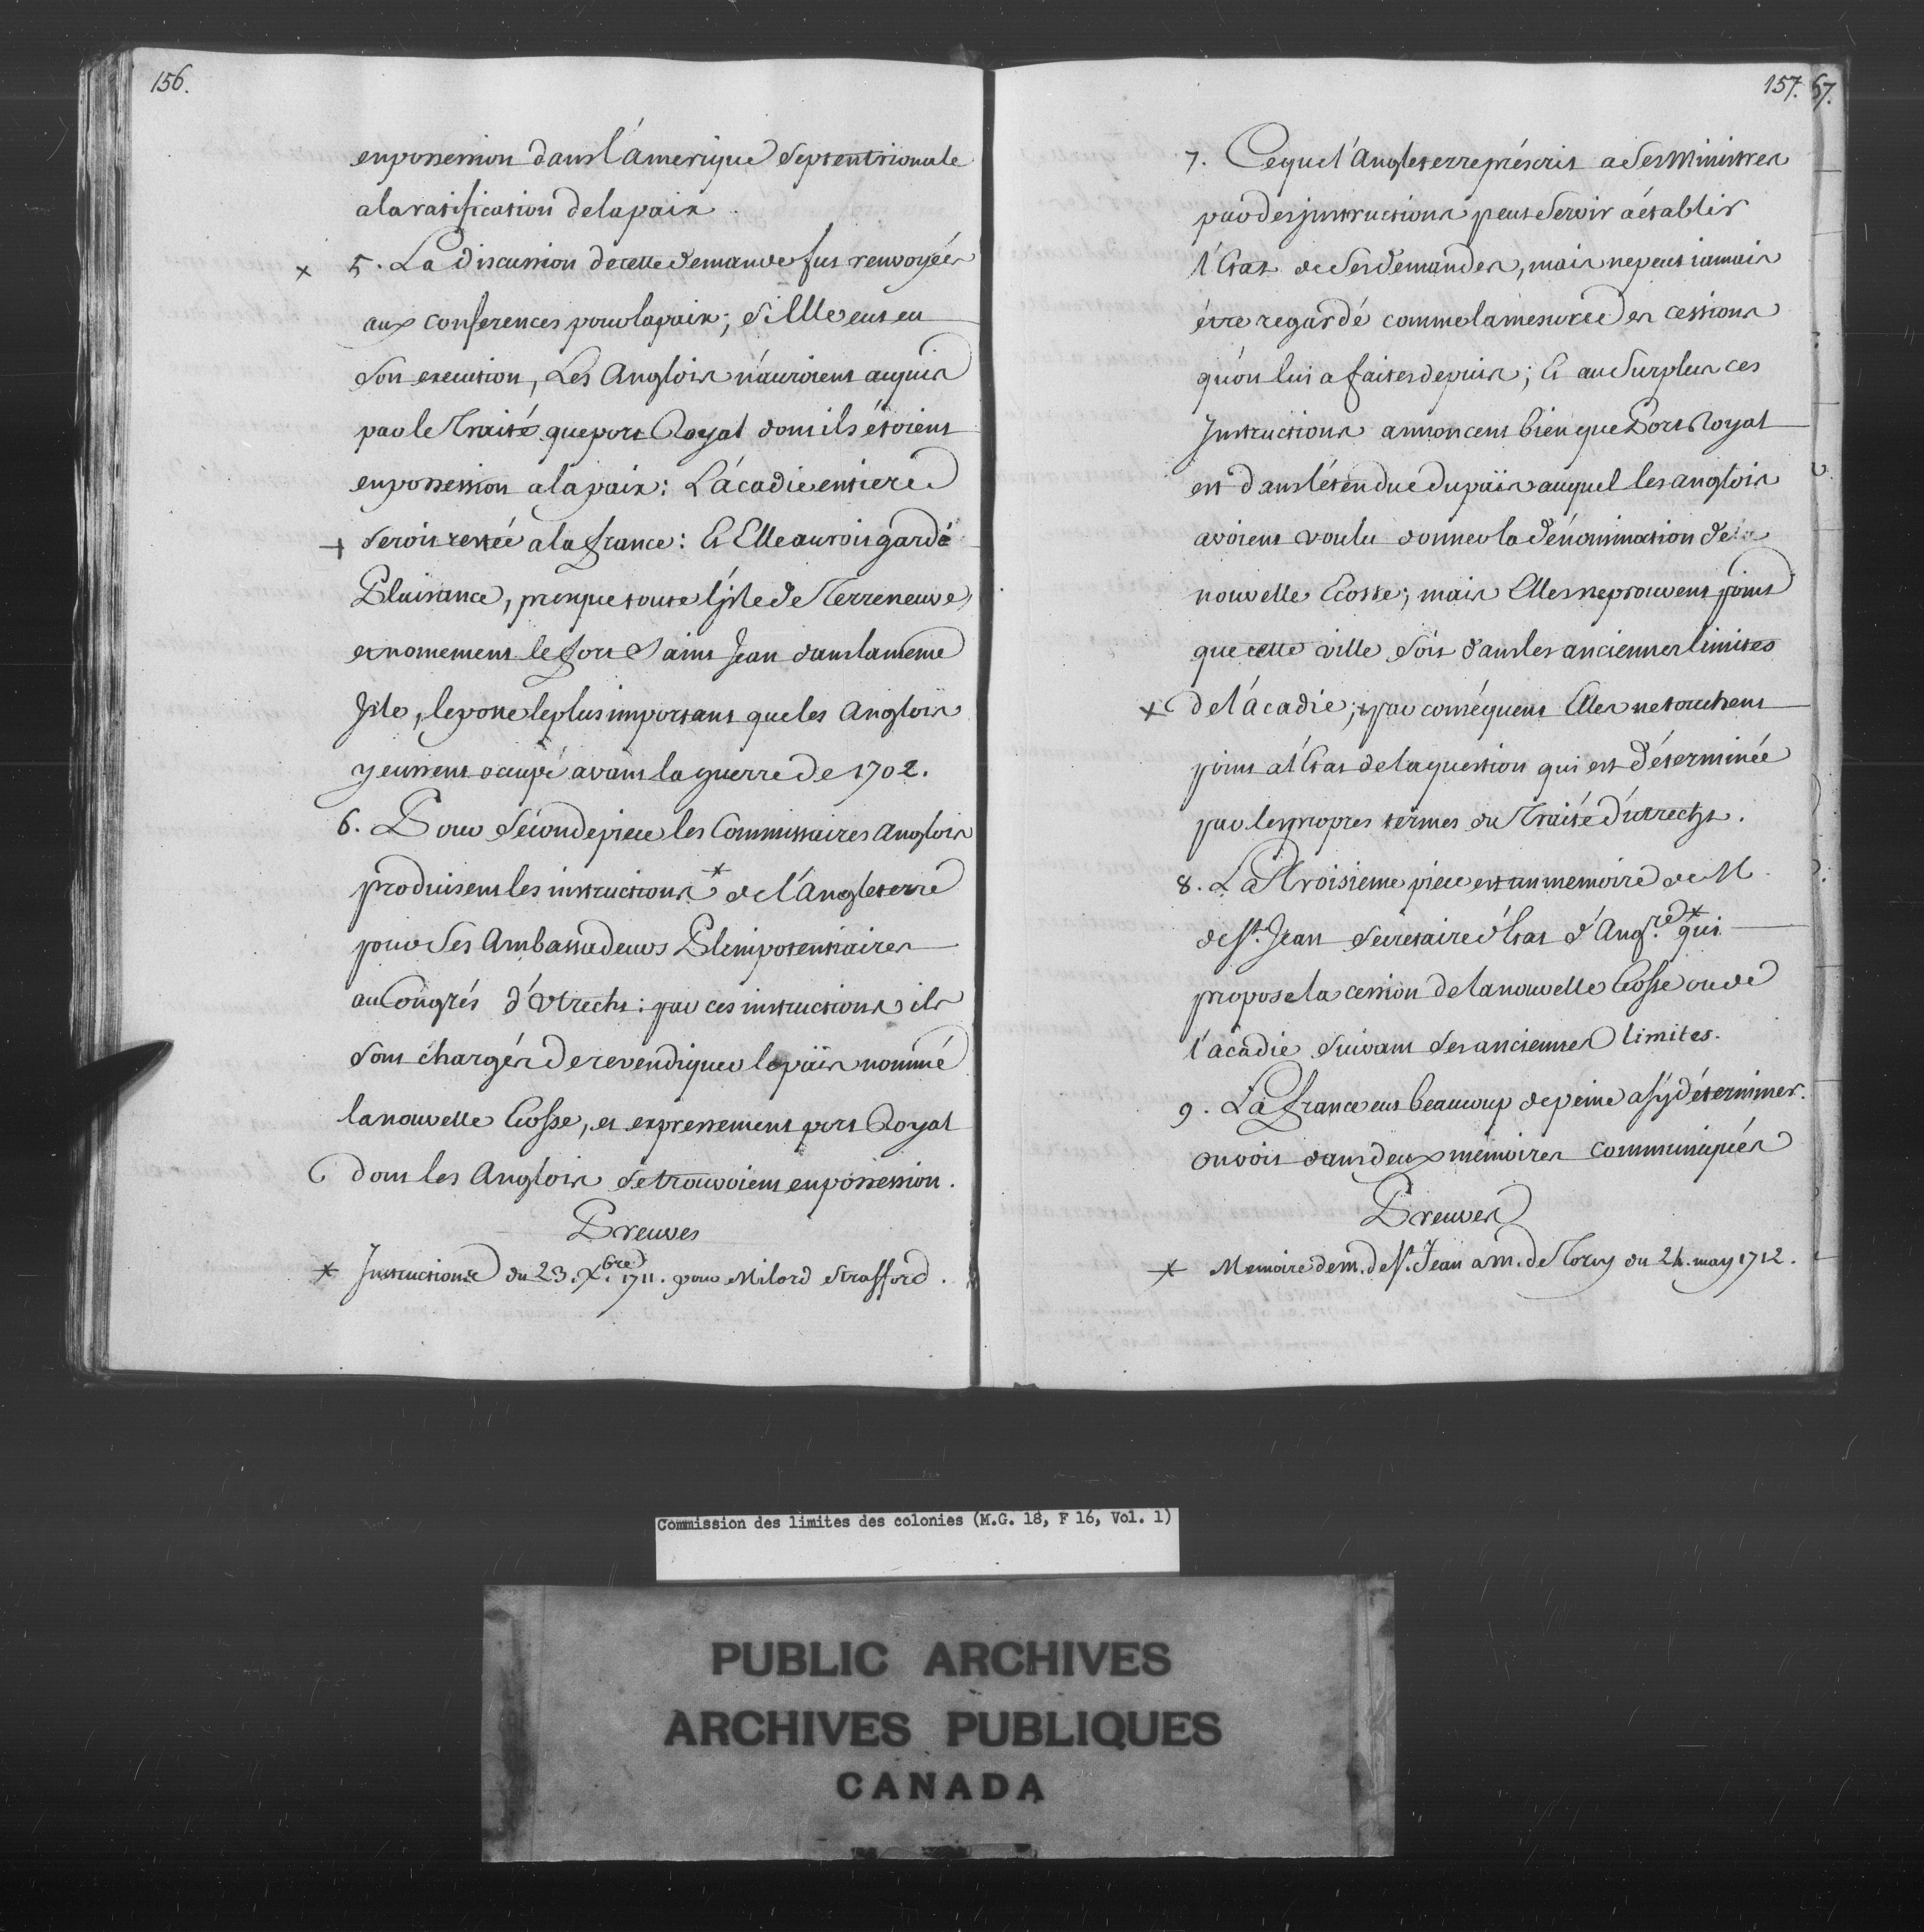 156.
en possession dans l'amerique Septentrionale
a la ratification de la paix.
x 5. La discussion de cette demande fut renvoyée
aux conferences pour la paix; si Elle eut eu
son execution, Les Anglois n'auroient acquis
par le Traité que port Royal dont ils étoient
en possession a la paix: L'acadie entiere
+ seroit restée a la france: Et Elle auroit gardé
Plaisance, presque toute l'Isle de Terreneuve,
et nomement le fort Saint Jean dans la meme
Isle, le poste le plus important que les Anglois
y eussent occupé avant la guerre de 1702.
6. Pour seconde piece les Commissaires Anglois
produisent les instructions * de l'Angleterre
pour ses Ambassadeurs Plenipotentiaires
au Congrés d'Utrecht: par ces instructions ils
sont chargés de revendiquer le païs nommé
la nouvelle Ecosse, et expressement port Royal
dont les Anglois se trouvoient en possession.
Preuves
* Instructions du 23. Xbre. 1711. pour Milord Strafford.
157. 67.
7. Ce que l'Angleterre préscrit a ses Ministres
par des instructions peut servir a établir
l'Etat de ses demandes, mais ne peut iamais
étre regardé comme la mesure des cessions
qu'on lui a faites depuis; Et au Surplus ces
Instructions annoncent bien que Port Royal
est dans l'étendue du païs auquel les anglois
avoient voulu donner la dénomination de la
nouvelle Ecosse; mais Elles ne prouvent point
que cette ville soit dans les anciennes limites
x de l'acadie; par conséquent Elles ne touchent
point a l'Etat de la question qui est déterminée
par les propres termes du Traité d'utrecht.
8. La Troisieme piece est un memoire de M.
de St. Jean secretaire d'Etat d'Angre. * qui
propose la cession de la nouvelle Ecosse ou de
l'acadie suivant ses anciennes limites.
9. La france eut beaucoup de peine a s'y déterminer.
on voit dans deux mémoires communiqués
Preuves
* Memoire de m. de St. Jean a m. de Torcy du 24. may 1712.
Commission des limites des colonies (M.G. 18, F 16, Vol. 1)
PUBLIC ARCHIVES
ARCHIVES PUBLIQUES
CANADA